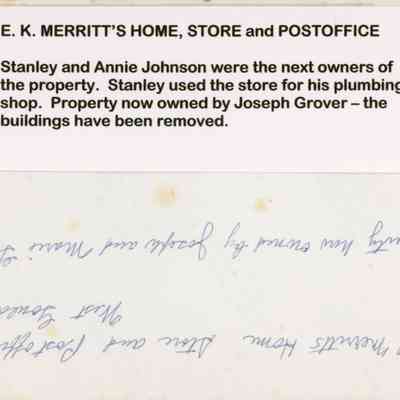 E. K. MERRITT'S HOME, STORE and POSTOFFICE
Stanley and Annie Johnson were the next owners of
the property. Stanley used the store for his plumbing
shop. Property now owned by Joseph Grover – the
buildings have been removed.
Merritt's Home Store and Postoffi
West Goul
erty now owned by Joseph and Marie G